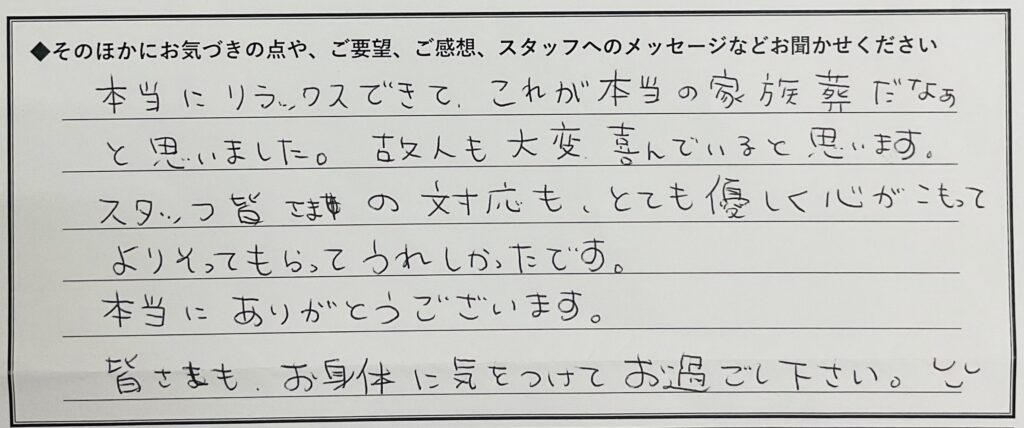 ◆そのほかにお気づきの点や、ご要望、ご感想、スタッフへのメッセージなどお聞かせください
本当にリラックスできて、これが本当の家族葬だなぁ
と思いました。故人も大変喜んでいると思います。
スタッフ皆さまの対応も、とても優しく心がこもって
よりそってもらってうれしかったです。
本当にありがとうございます。
皆さまも、お身体に気をつけてお過ごし下さい。